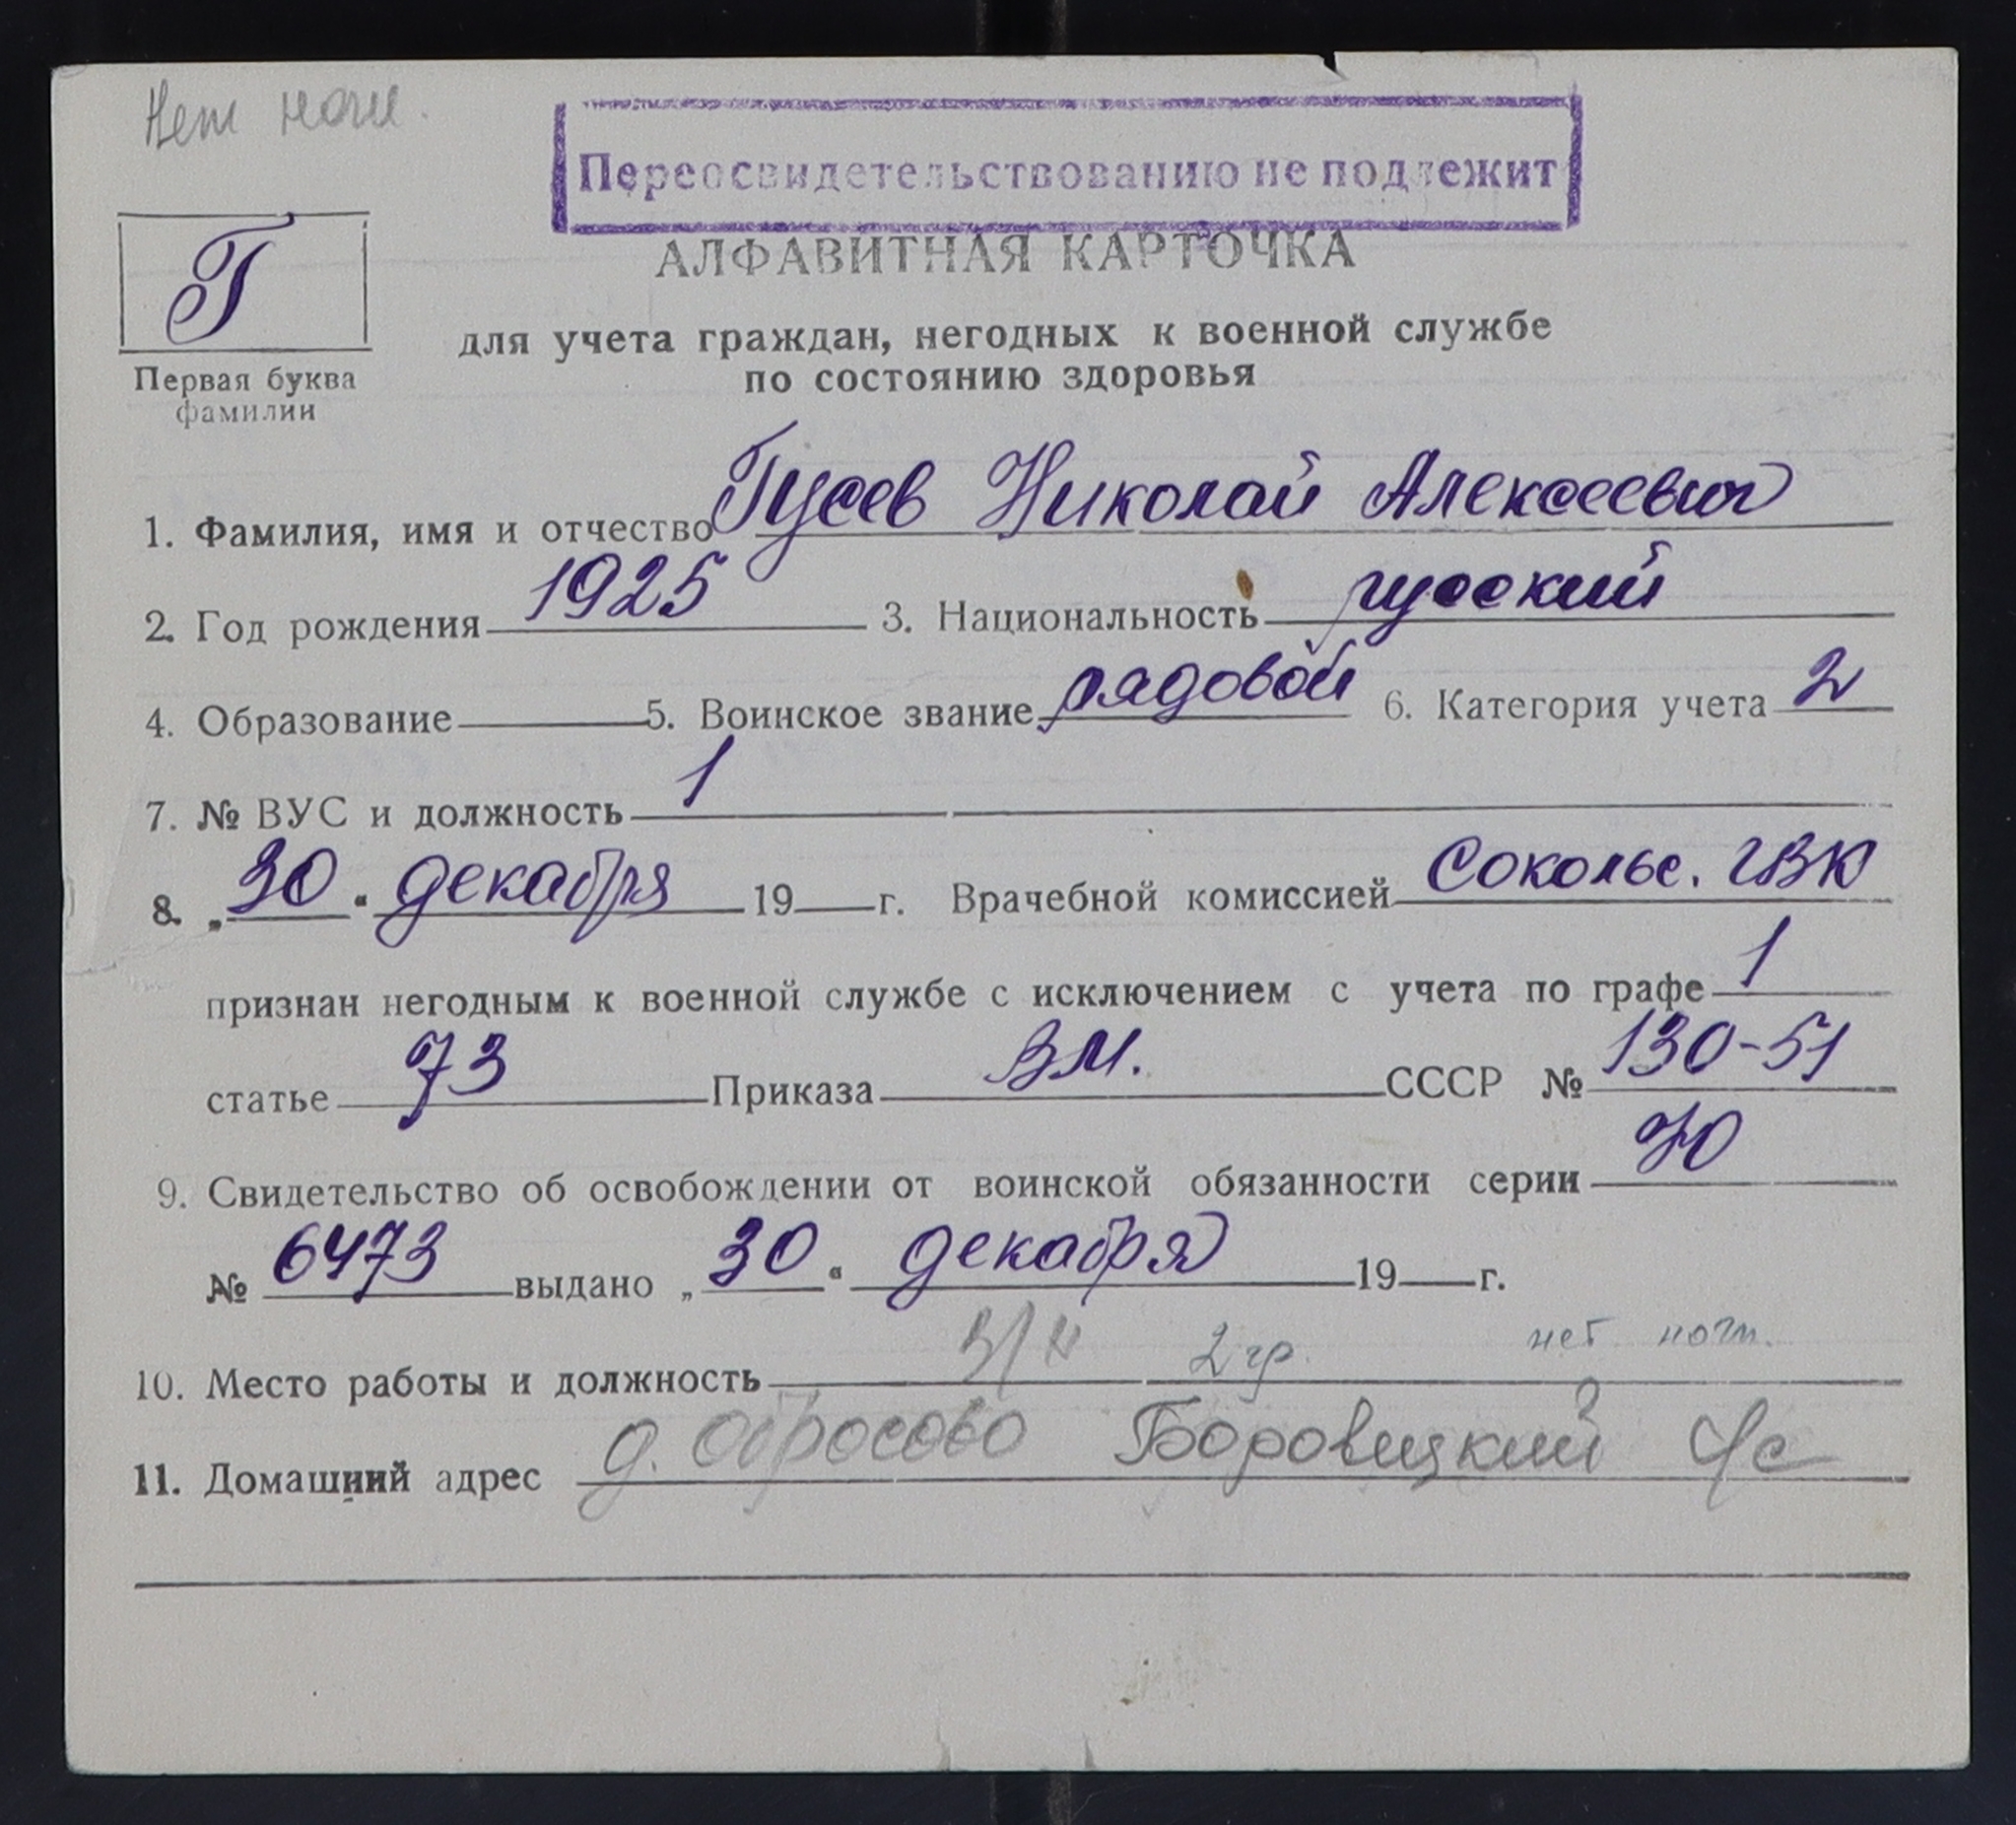 Нет ноги.
Переосвидетельствованию не подлежит
Г
Первая буква
фамилии
АЛФАВИТНАЯ КАРТОЧКА
для учета граждан, негодных к военной службе
по состоянию здоровья
1. Фамилия, имя и отчество Гусев Николай Алексеевич
2. Год рождения 1925 3. Национальность русский
4. Образование 5. Воинское звание рядовой 6. Категория учета 2
7. № ВУС и должность 1
8. „30“ декабря 19 г. Врачебной комиссией Сокольс. ГВК
признан негодным к военной службе с исключением с учета по графе 1
статье 73 Приказа ВМ. СССР № 130-51
9. Свидетельство об освобождении от воинской обязанности серии
№ 6473 выдано „30“ декабря 19 г.
10. Место работы и должность 2 гр. нет ноги.
11. Домашний адрес д. Обросово Боровецкий с/с